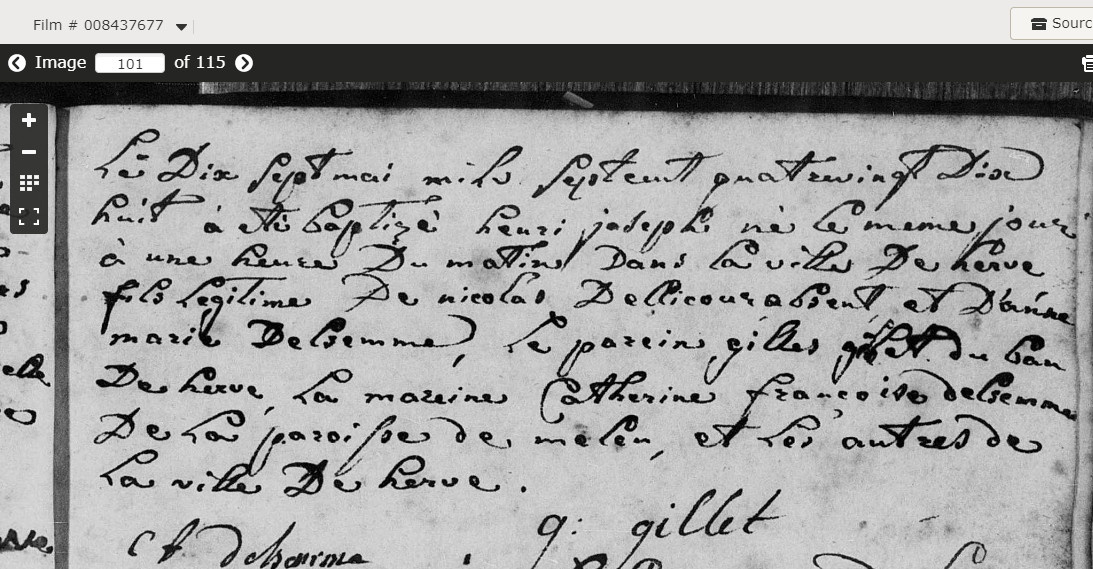 Film # 008437677
Sourc
Image 101 of 115
Le Dix Sept mai mils Septcent quatrevingt Dix
huit à eté baptizé henri joseph né le meme jour
à une heure Du matin Dans la ville De herve
fils legitime De nicolas Dellicour absent, et D'anne
marie Delsemme, le parein gilles gilet du ban
De herve, La mareine Catherine françoise delsemme
De La paroisse de melen, et les autres de
La ville De herve.
g: gillet
c f delsemme